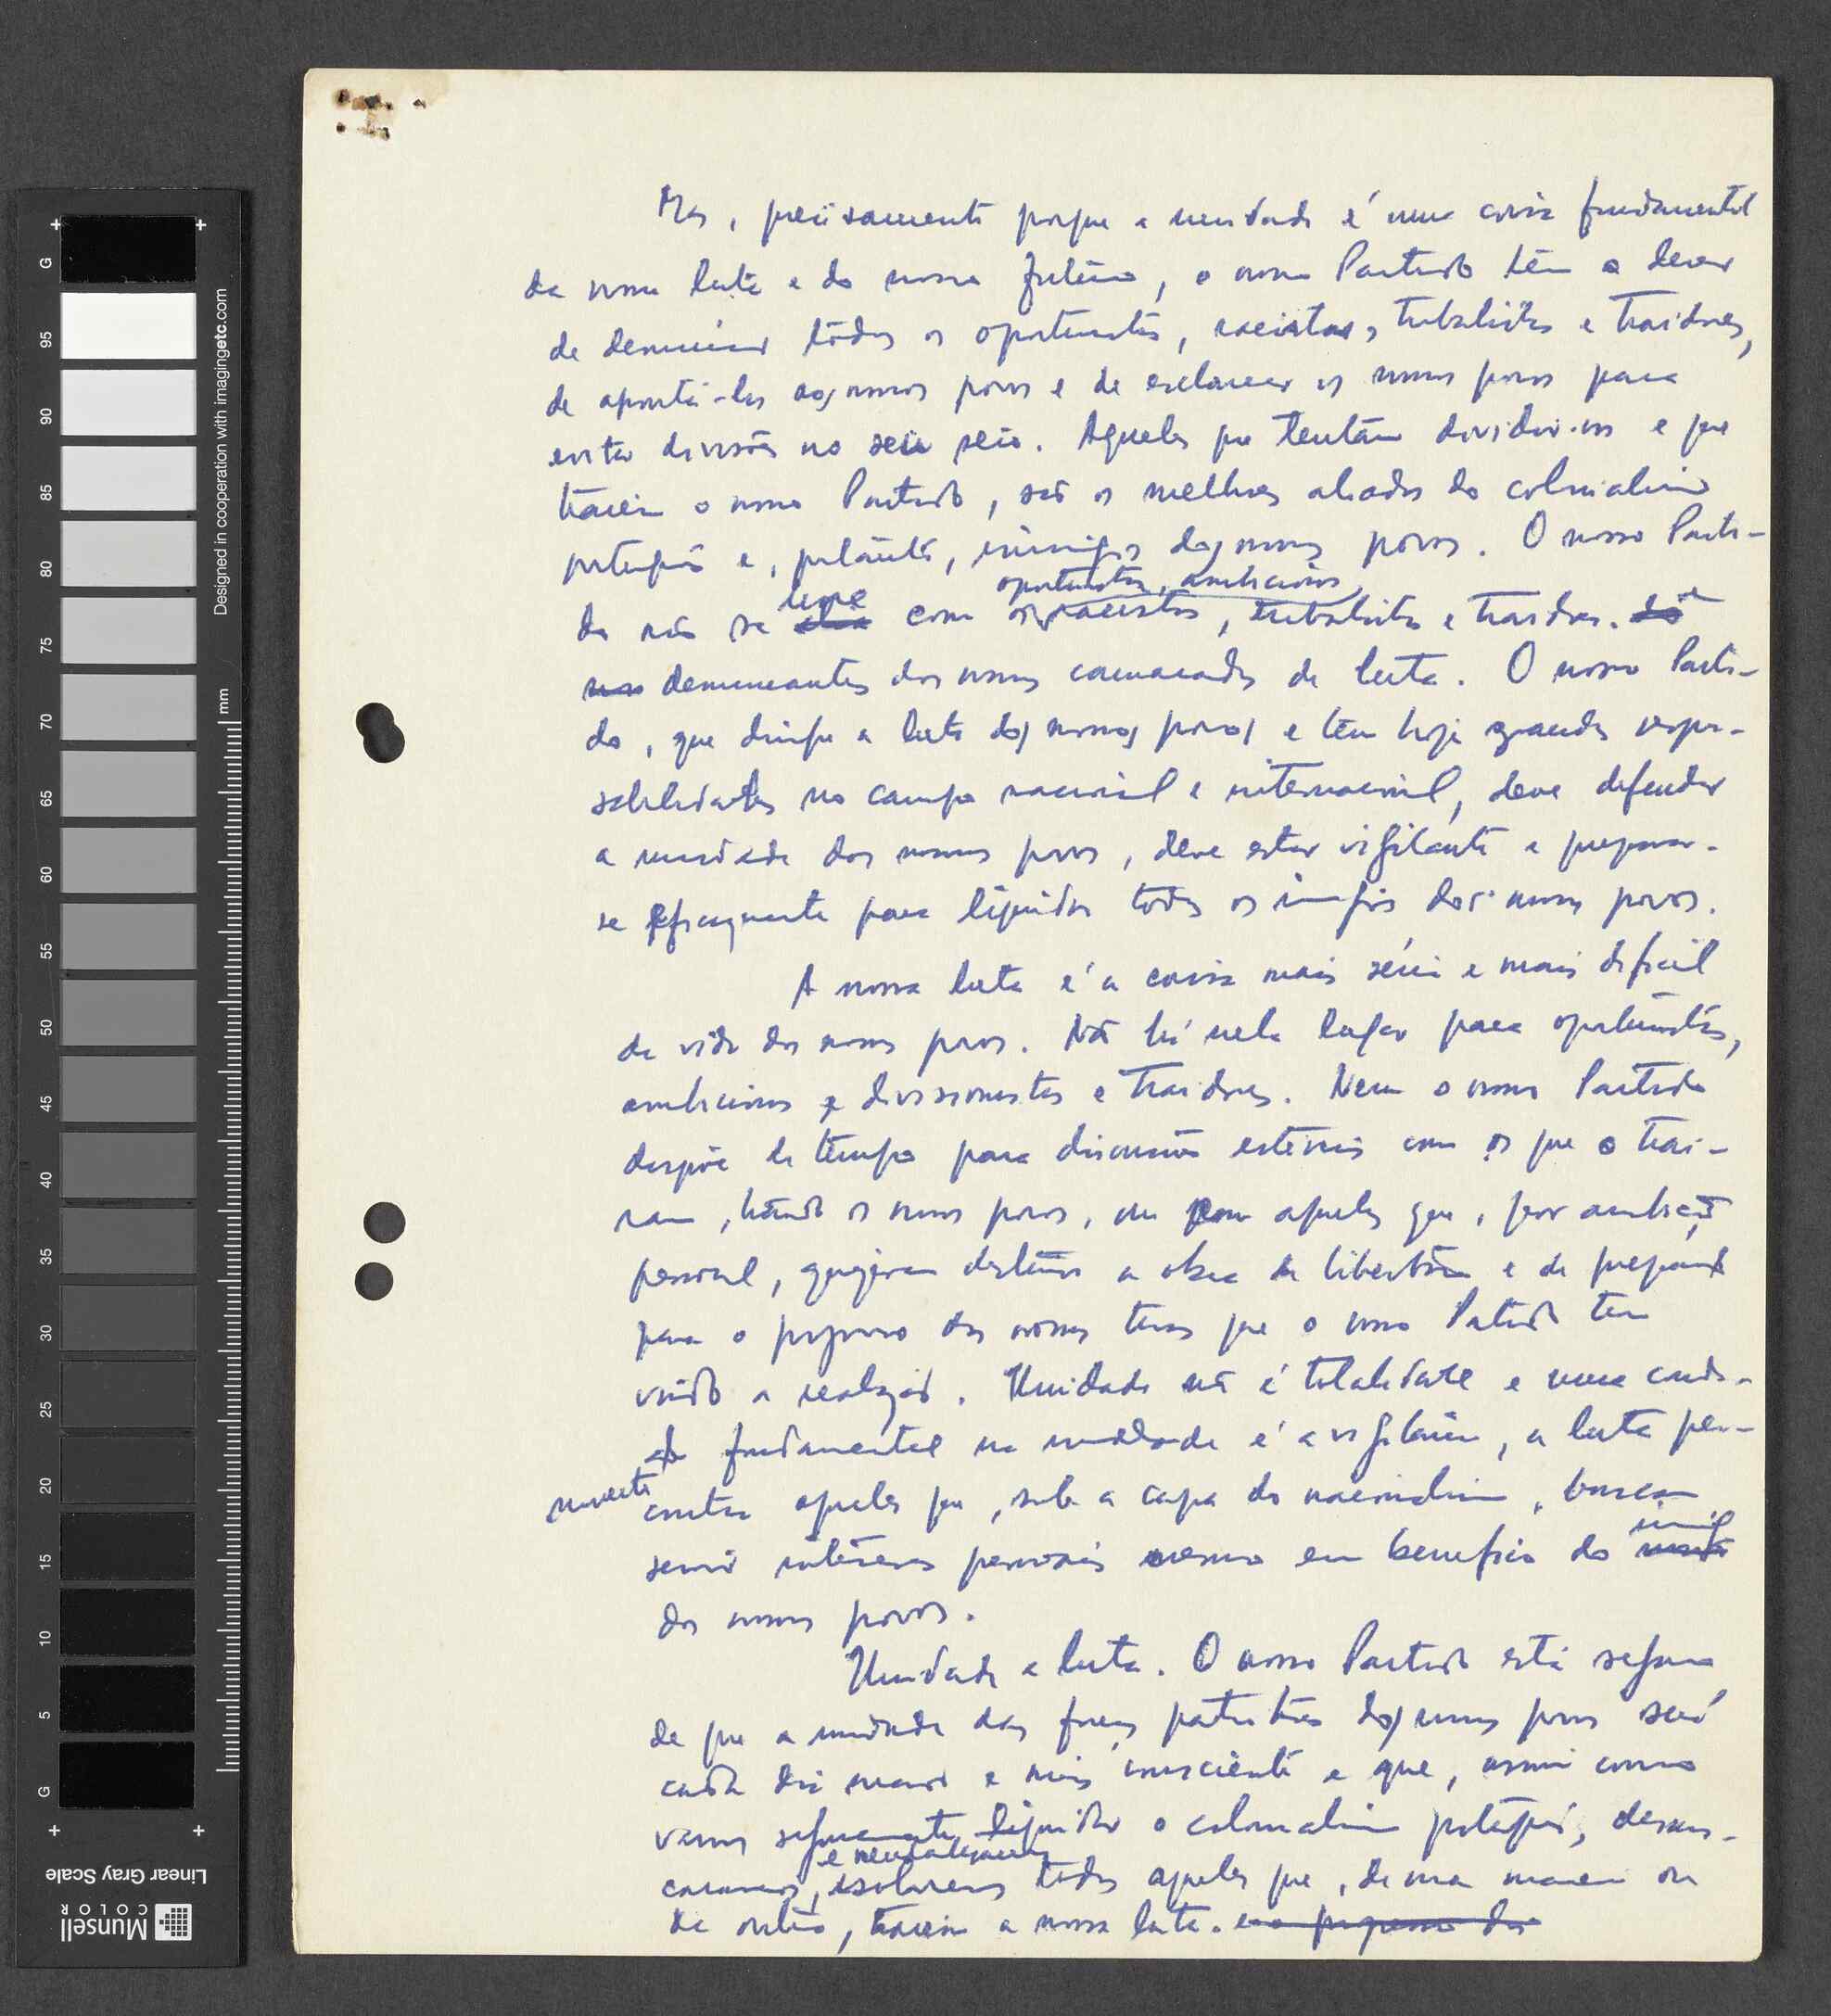 Mas, precisamente porque a unidade é uma coisa fundamental
da nossa luta e do nosso futuro, o nosso Partido tem o dever
de denunciar todos os oportunistas, racistas, tribalistas e traidores,
de apontá-los aos nossos povos e de esclarecer os nossos povos para
evitar divisões no seu seio. Aqueles que tentam dividir-nos e que
traem o nosso Partido, são os melhores aliados do colonialismo
português e, portanto, inimigos dos nossos povos. O nosso Parti-
do não se une com os oportunistas, ambiciosos, racistas, tribalistas e traidores.
denunciantes dos nossos camaradas de luta. O nosso Parti-
do, que dirige a luta dos nossos povos e tem hoje grandes respon-
sabilidades no campo nacional e internacional, deve defender
a unidade dos nossos povos, deve estar vigilante e preparar-
se eficazmente para liquidar todos os inimigos dos nossos povos.
A nossa luta é a coisa mais séria e mais difícil
da vida dos nossos povos. Não há nela lugar para oportunistas,
ambiciosos e divisionistas e traidores. Nem o nosso Partido
dispõe de tempo para discussões estéreis com os que o traí-
ram, traindo os nossos povos, ou com aqueles que, por ambição
pessoal, quizeram destruir a obra de libertação e de preparação
para o progresso das nossas terras que o nosso Partido tem
vindo a realizar. Unidade não é totalidade e uma condi-
ção fundamental na unidade é a vigilância, a luta per-
manente contra aqueles que, sob a capa do nacionalismo, buscam
servir interesses pessoais mesmo em benefício do inimigo
dos nossos povos.
Unidade e luta. O nosso Partido está seguro
de que a unidade das forças patrióticas dos nossos povos será
cada dia maior e mais consciente e que, assim como
vamos seguramente liquidar o colonialismo português, desmas-
caramos, isolaremos e neutralizaremos todos aqueles que, de uma maneira ou
de outra, traem a nossa luta. e o progresso dos